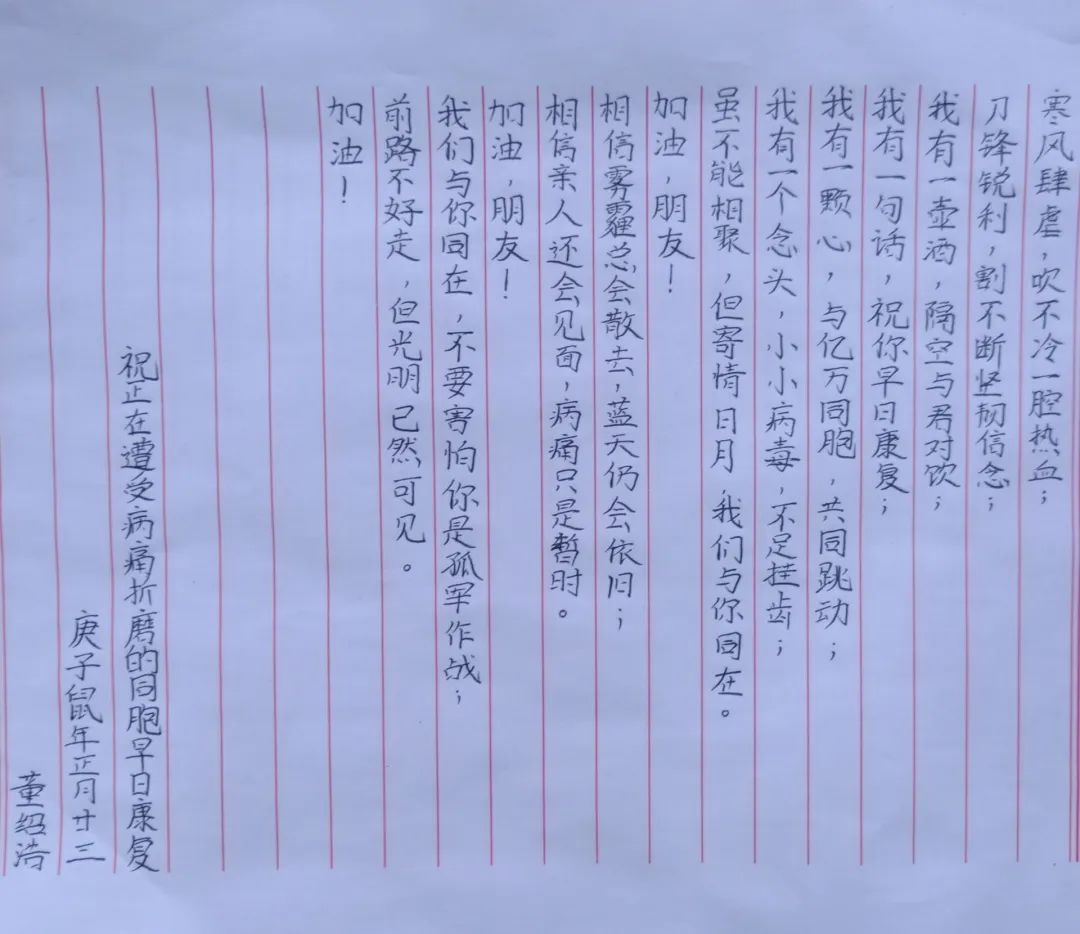 寒风肆虐，吹不冷一腔热血；
刀锋锐利，割不断坚韧信念；
我有一壶酒，隔空与君对饮；
我有一句话，祝你早日康复；
我有一颗心，与亿万同胞，共同跳动；
我有一个念头，小小病毒，不足挂齿；
虽不能相聚，但寄情日月，我们与你同在。
加油，朋友！
相信雾霾总会散去，蓝天仍会依旧；
相信亲人还会见面，病痛只是暂时。
加油，朋友！
我们与你同在，不要害怕你是孤军作战；
前路不好走，但光明已然可见。
加油！
祝正在遭受病痛折磨的同胞早日康复
庚子鼠年正月廿三
董绍浩